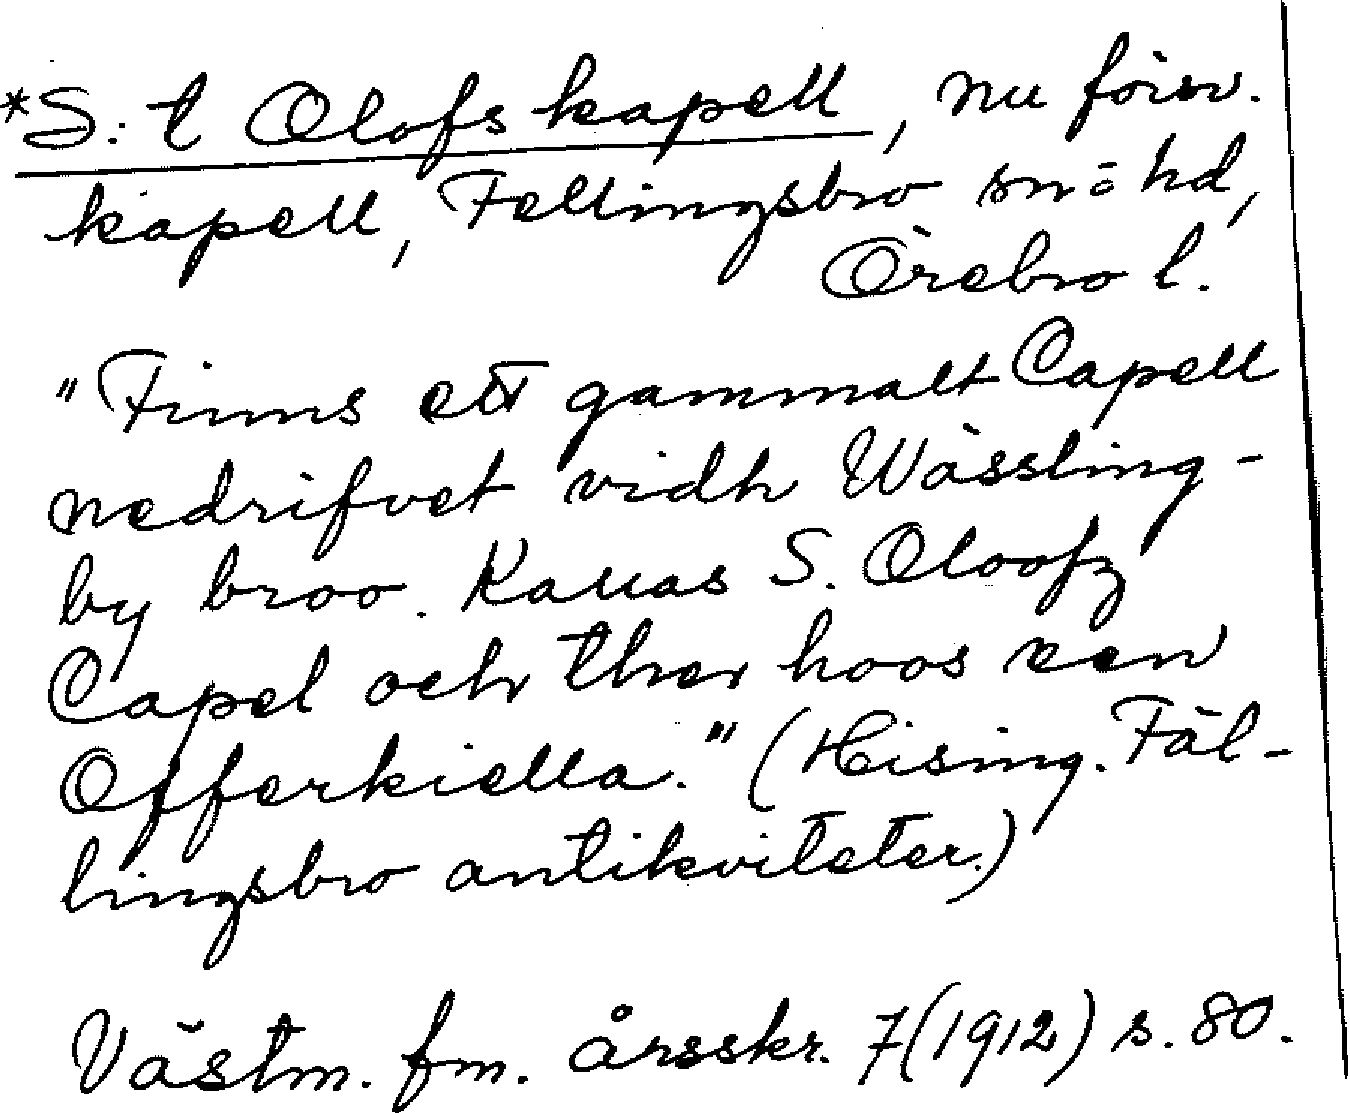 *S:t Olofs kapell, nu försv.
kapell, Fellingsbro sn o hd,
Örebro l.
"Finns ett gammalt Capell
nedrifvet vidh Wässling-
by broo. Kallas S. Oloofz
Capel och ther hoos een
Offerkiella." (Hising. Fäl-
lingsbro antikviteter.)
Västm. fm. årsskr. 7(1912) s. 80.